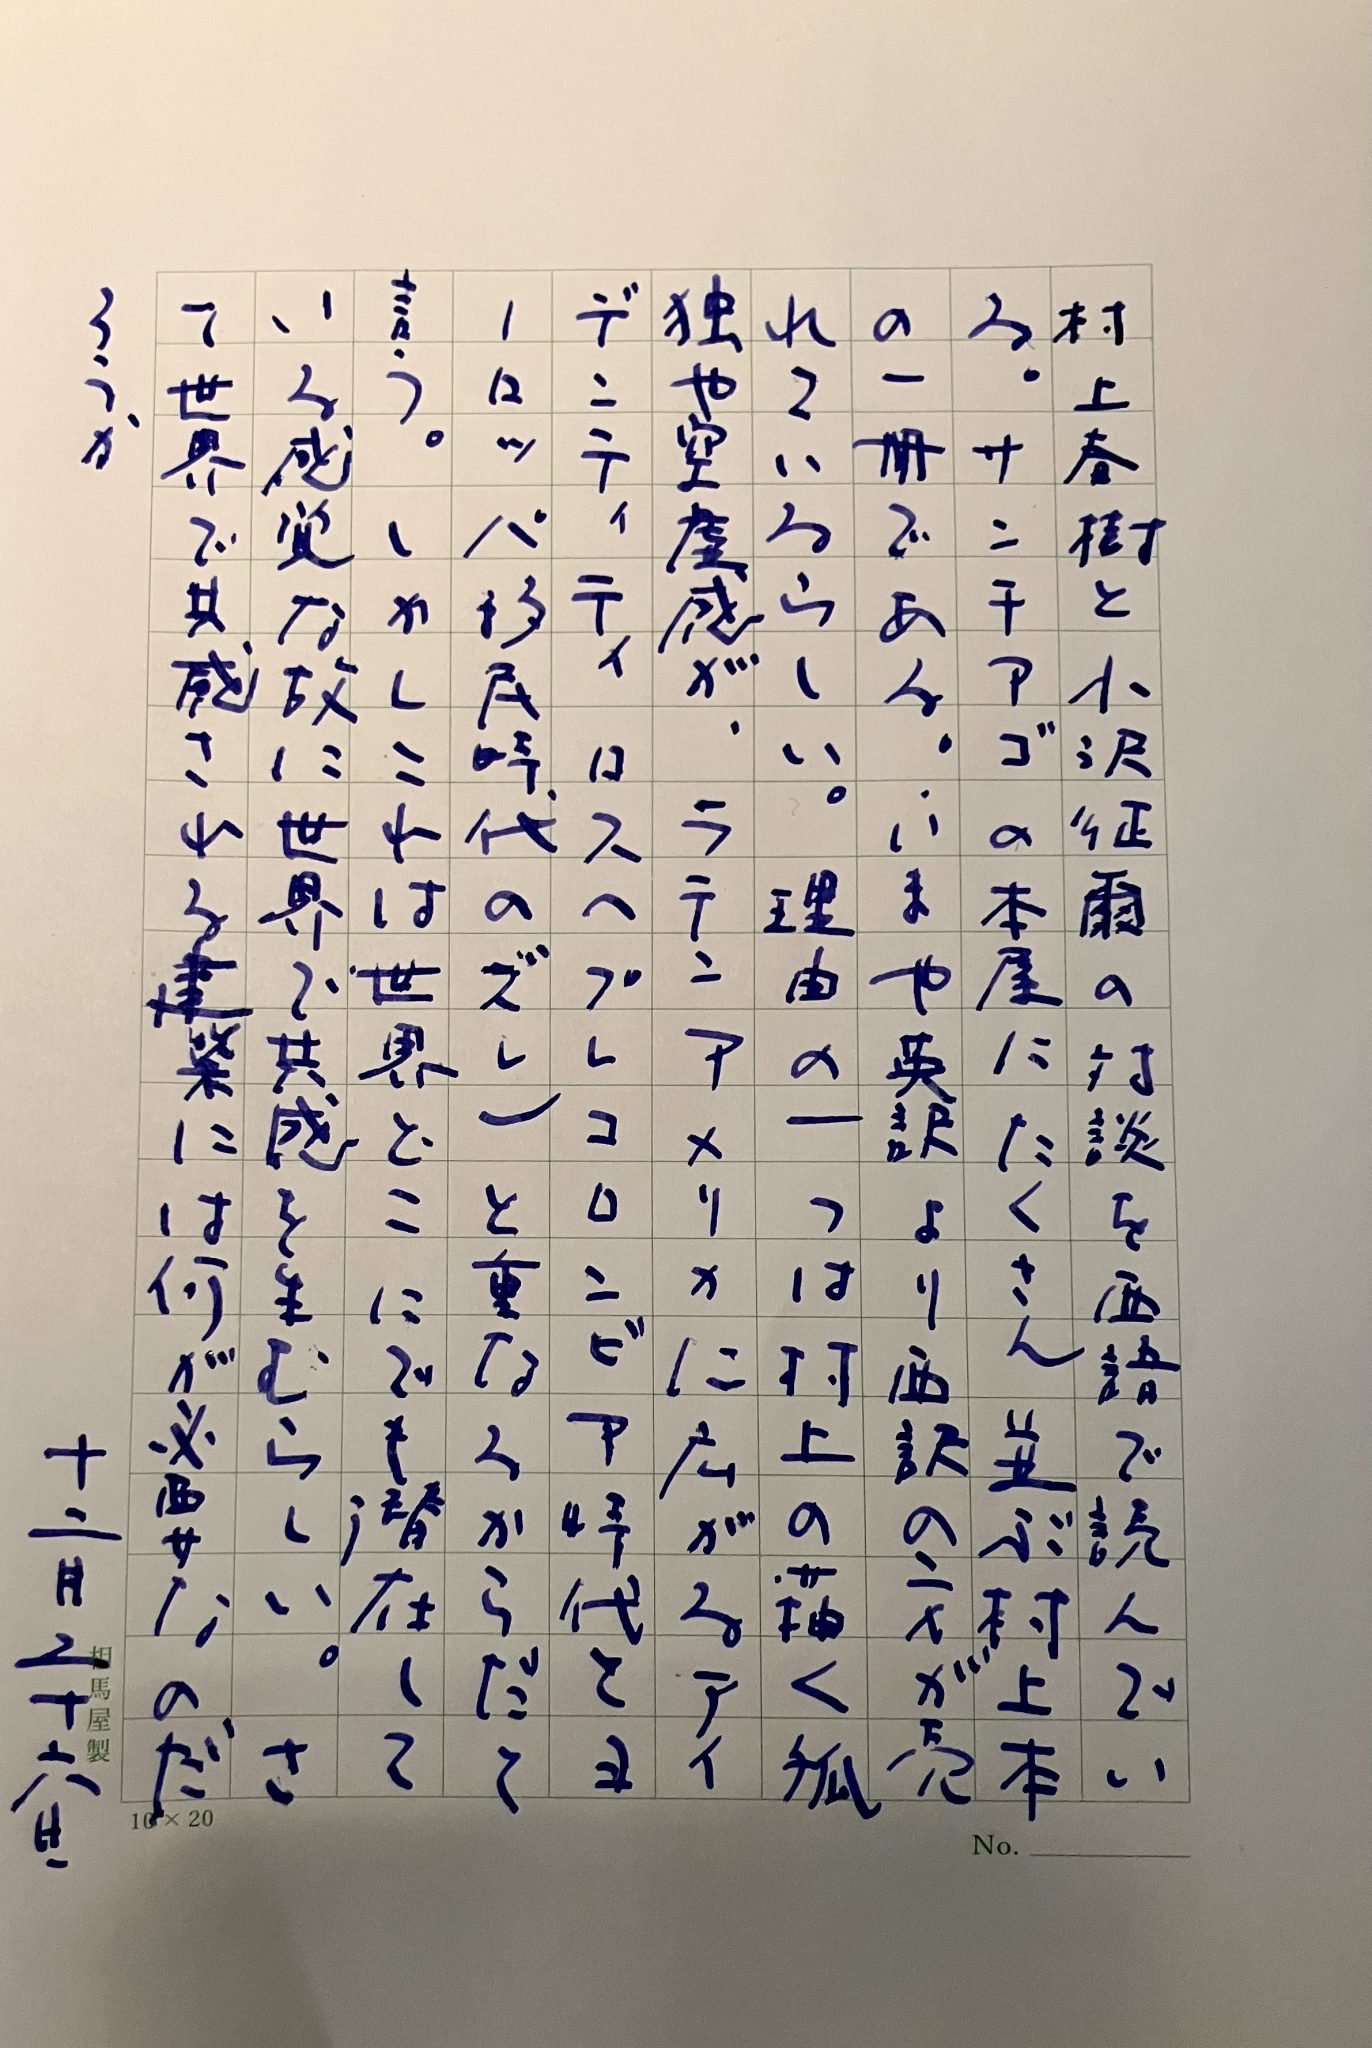 村上春樹と小沢征爾の対談を西語で読んでい
る。サンチアゴの本屋にたくさん並ぶ村上本
の一冊である。いまや英訳より西訳の方が売
れているらしい。理由の一つは村上の描く孤
独や空虚感が、ラテンアメリカに広がるアイ
デンティティロスヘプレコロンビア時代とヨ
ーロッパ移民時代のズレーと重なるからだと
言う。しかしこれは世界どこにでも潜在して
いる感覚な故に世界で共感を生むらしい。さ
て世界で共感される建築には何が必要なのだ
ろうか
十二月二十六日
相馬屋製
10×20
No.